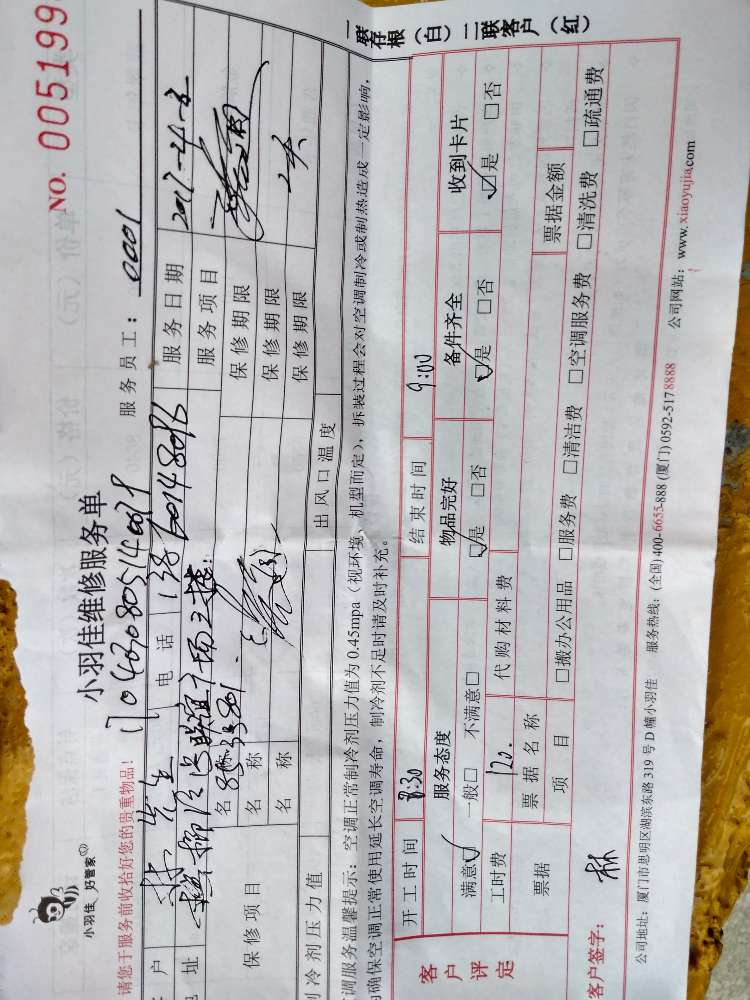 一联存根（白）二联客户（红）
NO. 005199
小羽佳 好管家
小羽佳维修服务单
请您于服务前收拾好您的贵重物品！
服务员工：0001
户 先生 电话 服务日期 2017-4-3
地址 服务项目
保修项目 名称 保修期限
名称 保修期限
名称 保修期限
制冷剂压力值 出风口温度
调服务温馨提示：空调正常制冷剂压力值为0.45mpa（视环境、机型而定），拆装过程会对空调制冷或制热造成一定影响，
确保空调正常使用延长空调寿命，制冷剂不足时请及时补充。
开工时间 8:30 结束时间 9:00
客户评定
服务态度 物品完好 备件齐全 收到卡片
满意☑ 一般□ 不满意□ ☑是 □否 ☑是 □否 ☑是 □否
工时费 120. 代购材料费
票据 票据名称 票据金额
项目 □搬办公用品 □服务费 □清洁费 □空调服务费 □清洗费 □疏通费
客户签字：林
公司地址：厦门市思明区湖滨东路319号D幢小羽佳 服务热线：(全国)400-6655-888 (厦门) 0592-5178888 公司网站：www.xiaoyujia.com